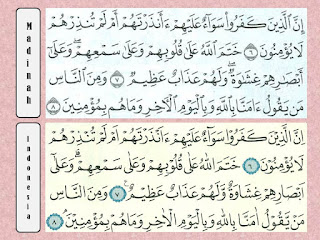 Madinah
إِنَّ ٱلَّذِينَ كَفَرُوا۟ سَوَآءٌ عَلَيْهِمْ ءَأَنذَرْتَهُمْ أَمْ لَمْ تُنذِرْهُمْ
لَا يُؤْمِنُونَ ٦ خَتَمَ ٱللَّهُ عَلَىٰ قُلُوبِهِمْ وَعَلَىٰ سَمْعِهِمْ ۖ وَعَلَىٰٓ
أَبْصَٰرِهِمْ غِشَٰوَةٌ ۖ وَلَهُمْ عَذَابٌ عَظِيمٌ ٧ وَمِنَ ٱلنَّاسِ
مَن يَقُولُ ءَامَنَّا بِٱللَّهِ وَبِٱلْيَوْمِ ٱلْءَاخِرِ وَمَا هُم بِمُؤْمِنِينَ ٨
Indonesia
اِنَّ الَّذِيْنَ كَفَرُوْا سَوَاۤءٌ عَلَيْهِمْ ءَاَنْذَرْتَهُمْ اَمْ لَمْ تُنْذِرْهُمْ
لَا يُؤْمِنُوْنَ ٦ خَتَمَ اللّٰهُ عَلٰى قُلُوْبِهِمْ وَعَلٰى سَمْعِهِمْ ۗ وَعَلٰٓى
اَبْصَارِهِمْ غِشَاوَةٌ وَّلَهُمْ عَذَابٌ عَظِيْمٌ ٧ وَمِنَ النَّاسِ
مَنْ يَّقُوْلُ اٰمَنَّا بِاللّٰهِ وَبِالْيَوْمِ الْاٰخِرِ وَمَا هُمْ بِمُؤْمِنِيْنَ ٨